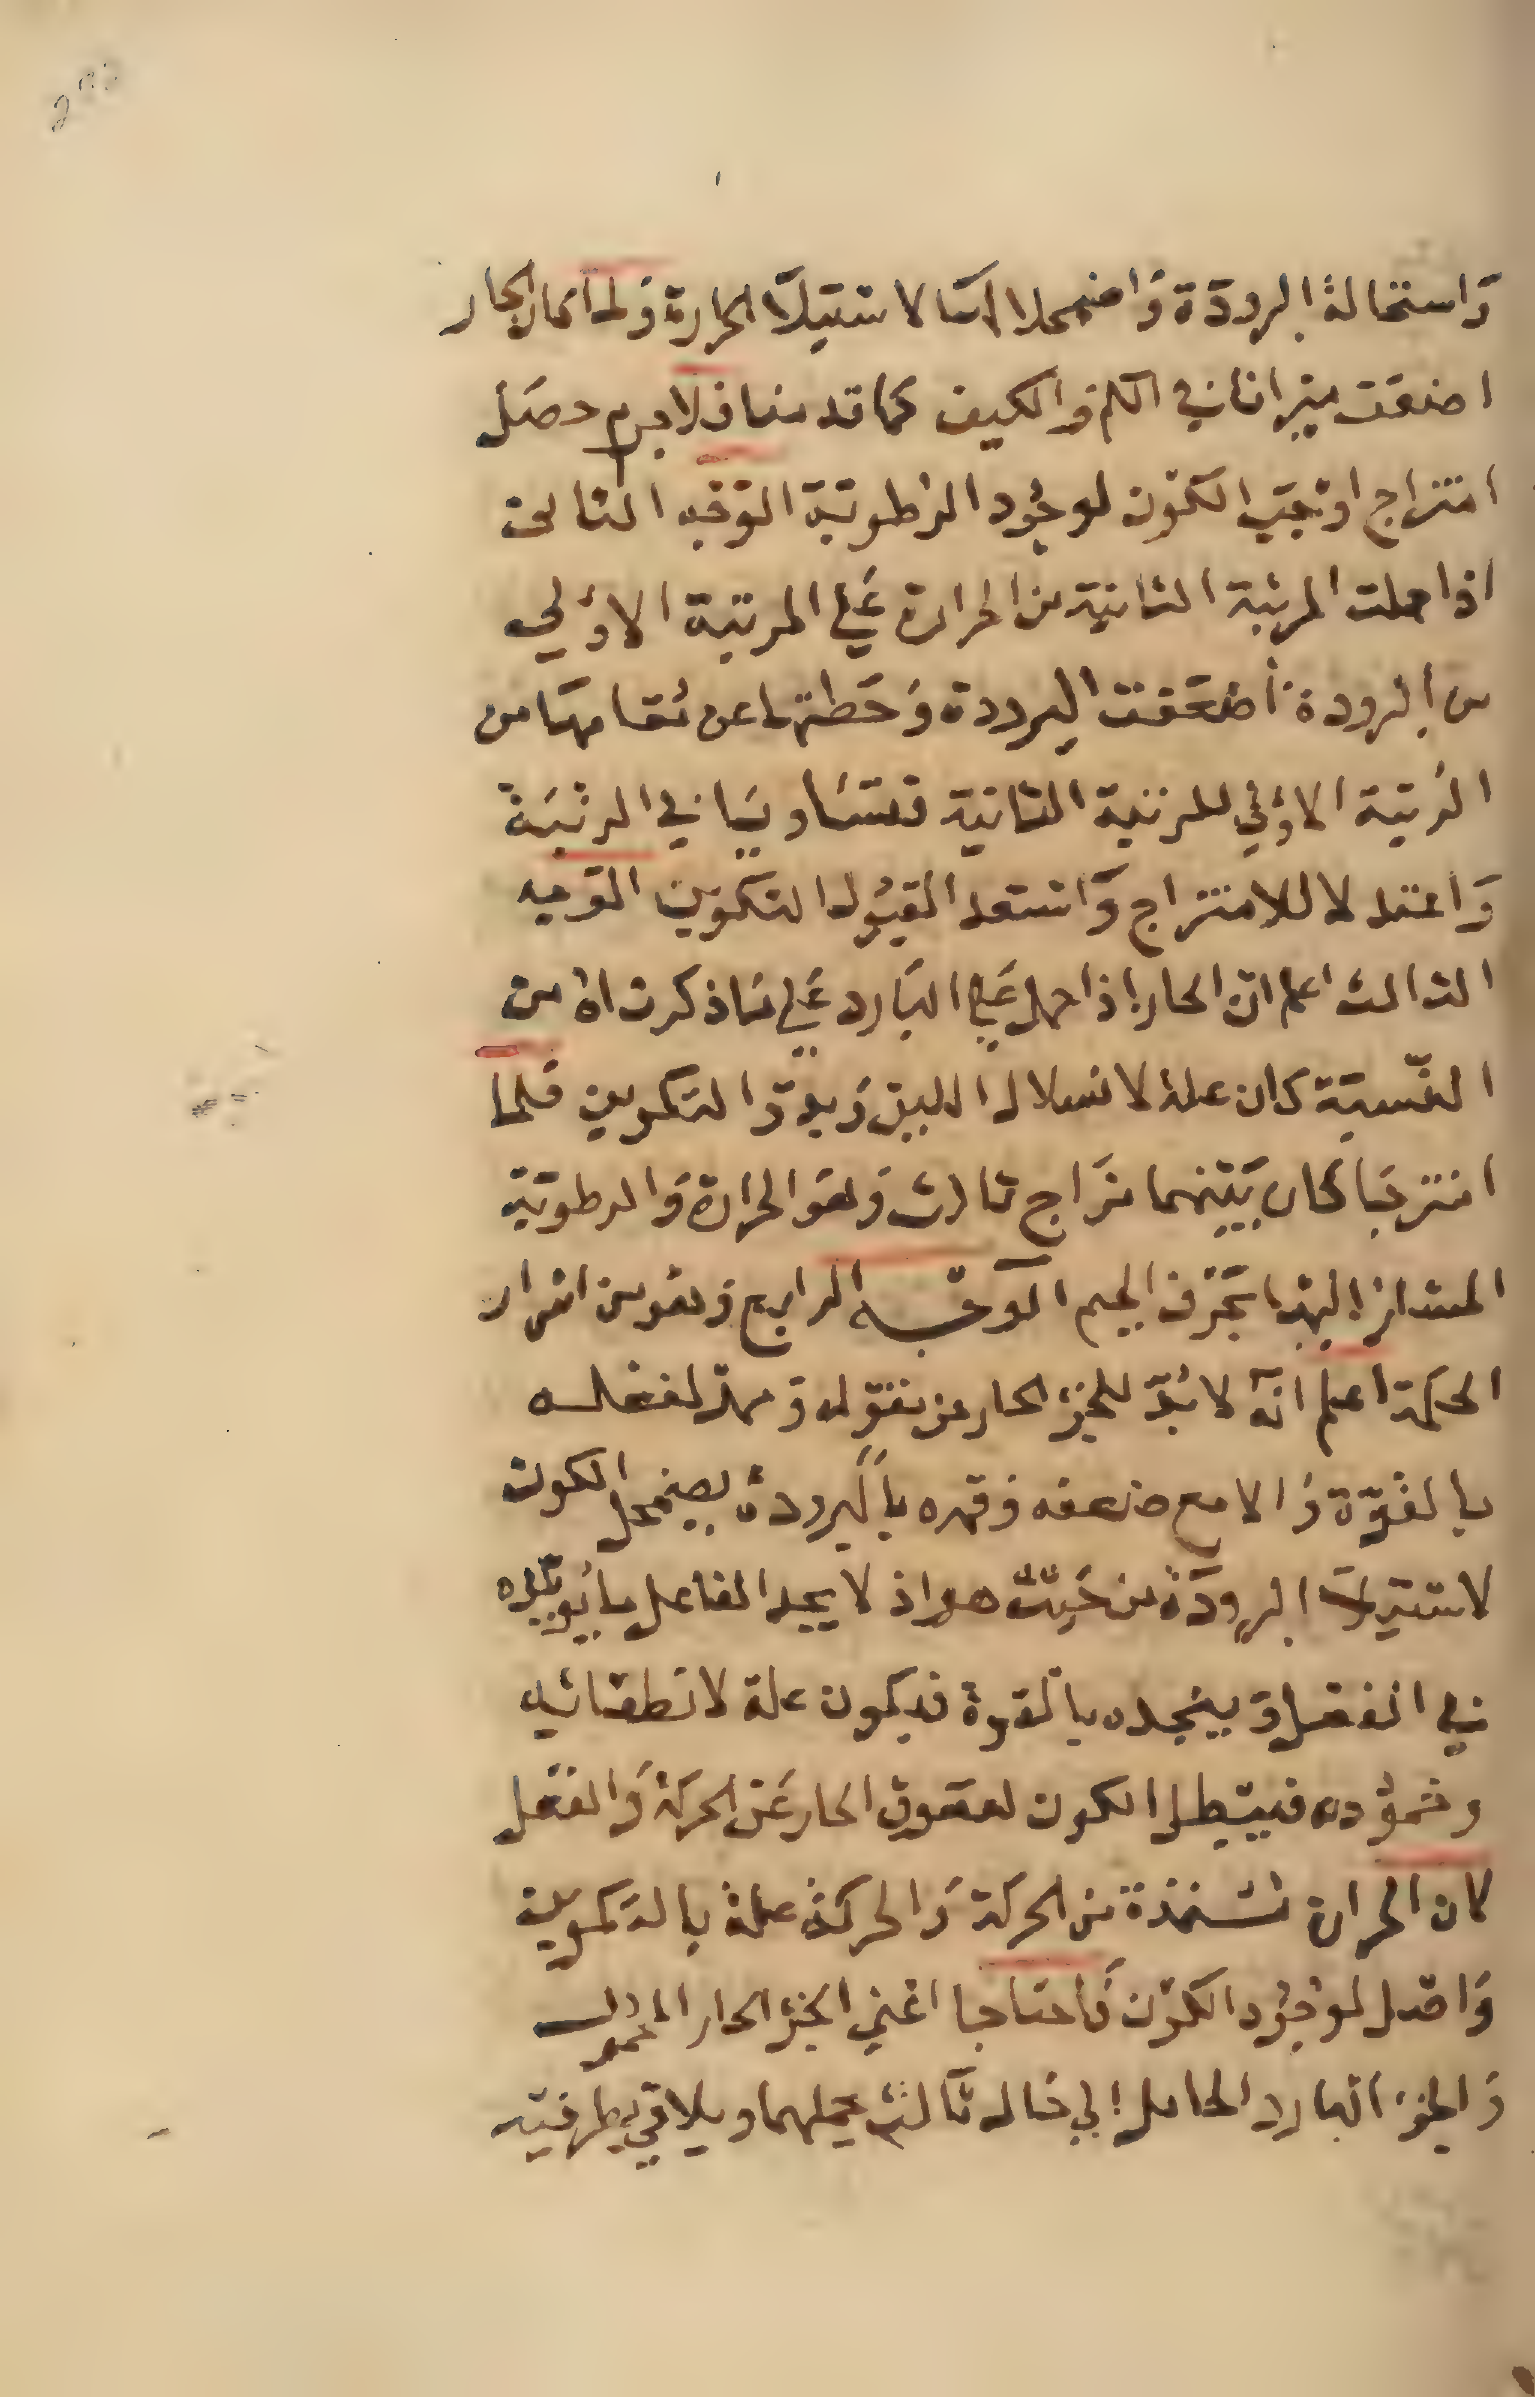 واستحالة البرودة واضمحلالها لاستيلا الحرارة ولما كان الحار
اضعف ميزانا في الكم والكيف كما قدمنا فلا جرم حصل
امتزاج اوجب الكون لوجود الرطوبة الوجه الثاني
اذا حملت المرتبة الثانية من الحرارة على المرتبة الاولى
من البرودة اضعفت البرودة وحطتها عن مقامها من
الرتبة الاولي للمرتبة الثانية فتساويا في الرتبة
واعتدلا للامتزاج واستعدا لقبول التكوين الوجه
الثالث اعلم ان الحار اذا حمل على البارد على ما ذكرناه من
النسبة كان علة لانسلال اليبس وبدو التكوين فلما
امتزجا كان بينهما مزاج ثالث وهو الحرارة والرطوبة
المشار اليها بحرف الجيم الوجه الرابع وهو من اسرار
الحكمة اعلم انه لا بد للجزء الحار من مقو له وممد لفعله
بالقوة والا مع ضعفه وقهره بالبرودة يضمحل الكون
لاستيلا البرودة من حيث هو اذ لا يجد الفاعل ما يويده
في الفعل وينجده بالقوة فيكون علة لانطفائه
وخموده فيبطل الكون لعوق الحار عن الحركة والفعل
كان الحرارة مستمدة من الحركة والحركة علة بالتكوين
واصل لوجود الكون فاحتاجا اعني الجزء الحار المحمول
والجزء البارد الحامل الي حال ثالث يحملهما ويلاقي بطرفيه